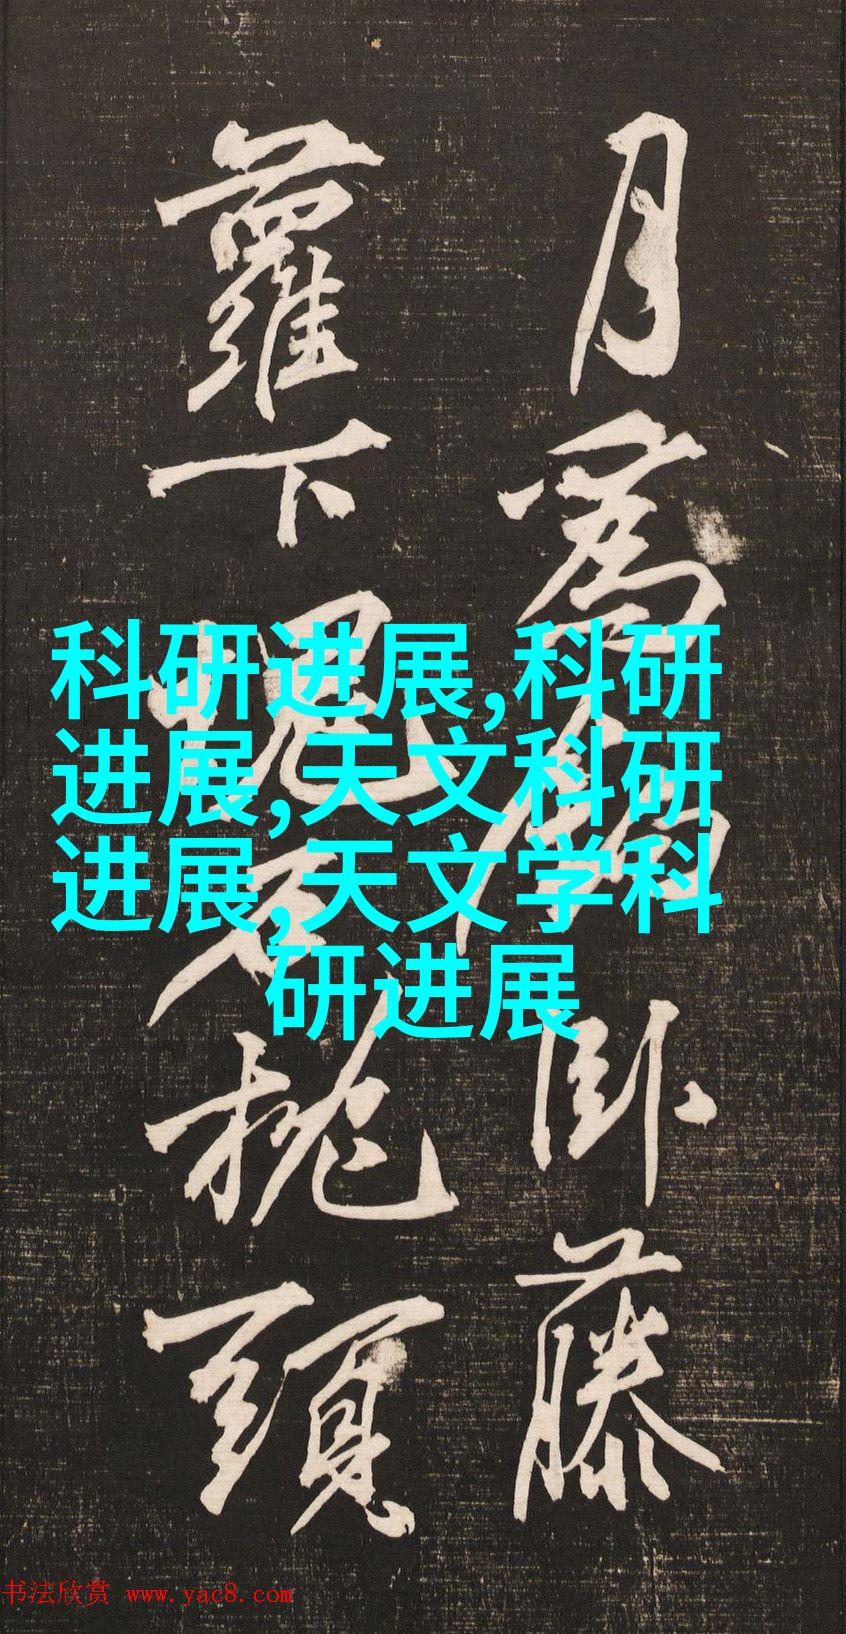 月為鉤卧藤
蘿下塊石枕頭
科研进展,科研
进展,天文科研
进展,天文学科
研进展
书法欣赏 www.yac8.com